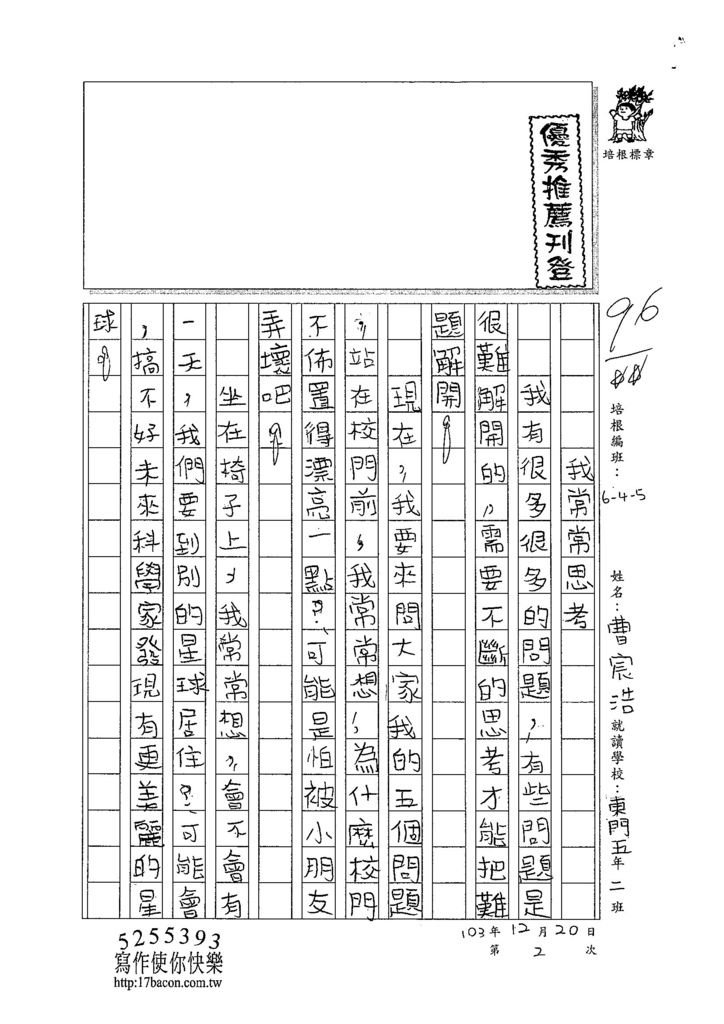 培根標章
優秀推薦刊登
96
培根編班：6-4-5
姓名：曹宸浩
就讀學校：東門五年二班
我常常思考
我有很多很多的問題，有些問題是
很難解開的，需要不斷的思考才能把難
題解開。
現在，我要來問大家我的五個問題
，站在校門前，我常常想，為什麼校門
不佈置得漂亮一點？可能是怕被小朋友
弄壞吧。
坐在椅子上，我常常想，會不會有
一天，我們要到別的星球居住？可能會
，搞不好未來科學家發現有更美麗的星
球。
103年12月20日
第2次
5255393
寫作使你快樂
http:17bacon.com.tw